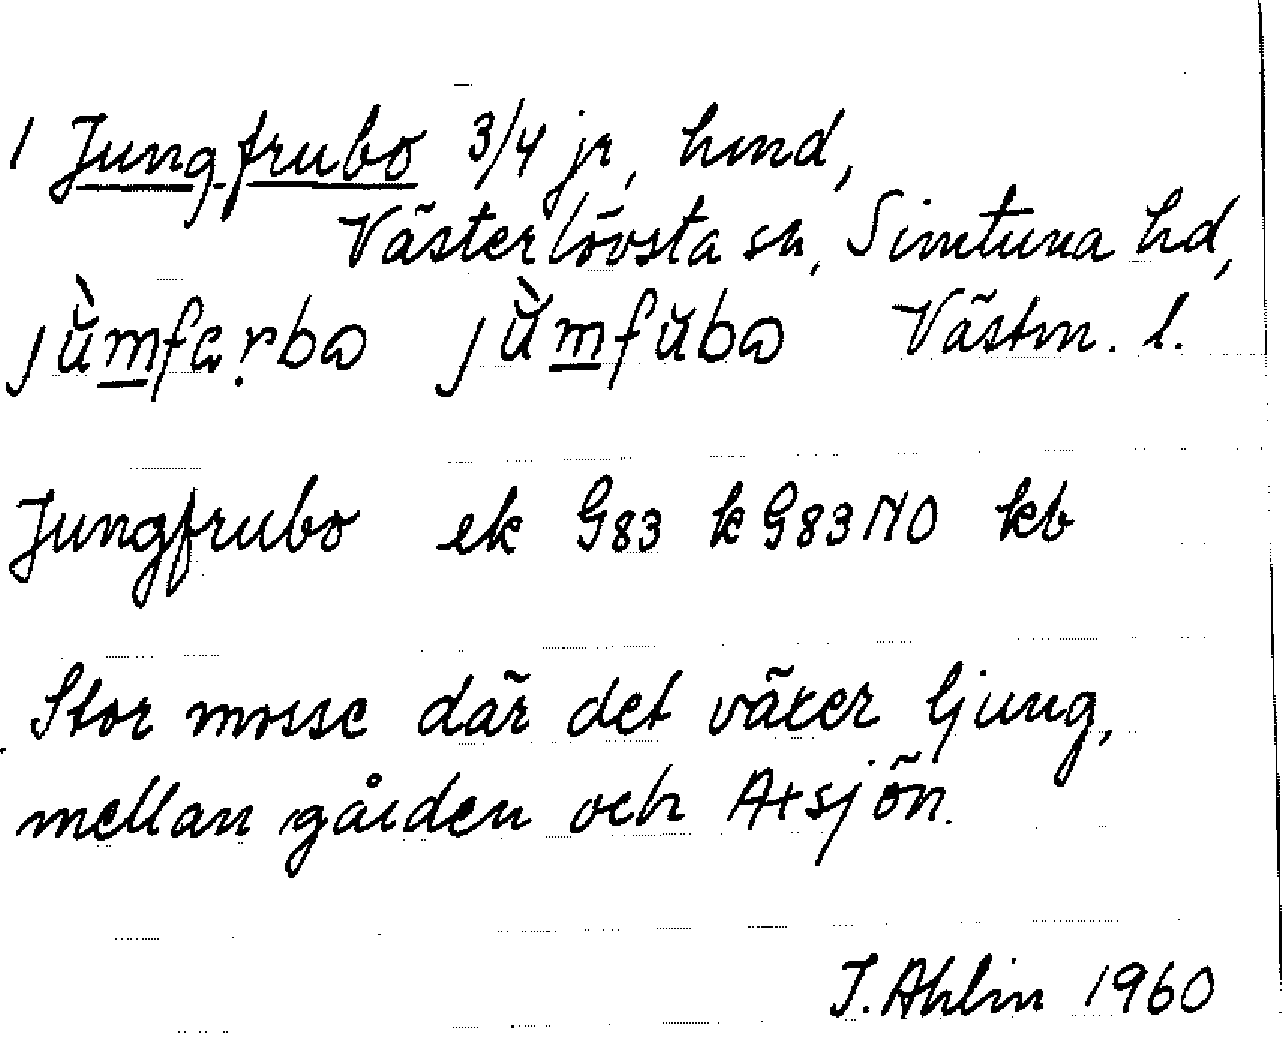 1 Jungfrubo 3/4 jr, hmd,
Västerlövsta sn, Simtuna hd,
jù̆mfạrbɷ jù̆mfŭbɷ Västm. l.
Jungfrubo ek G83 k G83NO kb
Stor mosse där det växer ljung,
mellan gården och Axsjön.
I. Ahlin 1960